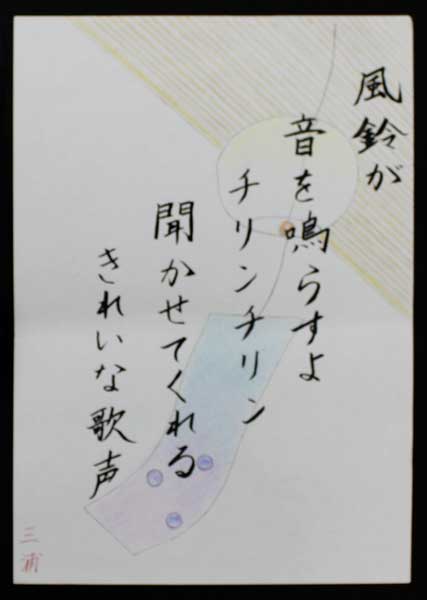 風鈴が
音を鳴らすよ
チリンチリン
聞かせてくれる
きれいな歌声
三浦